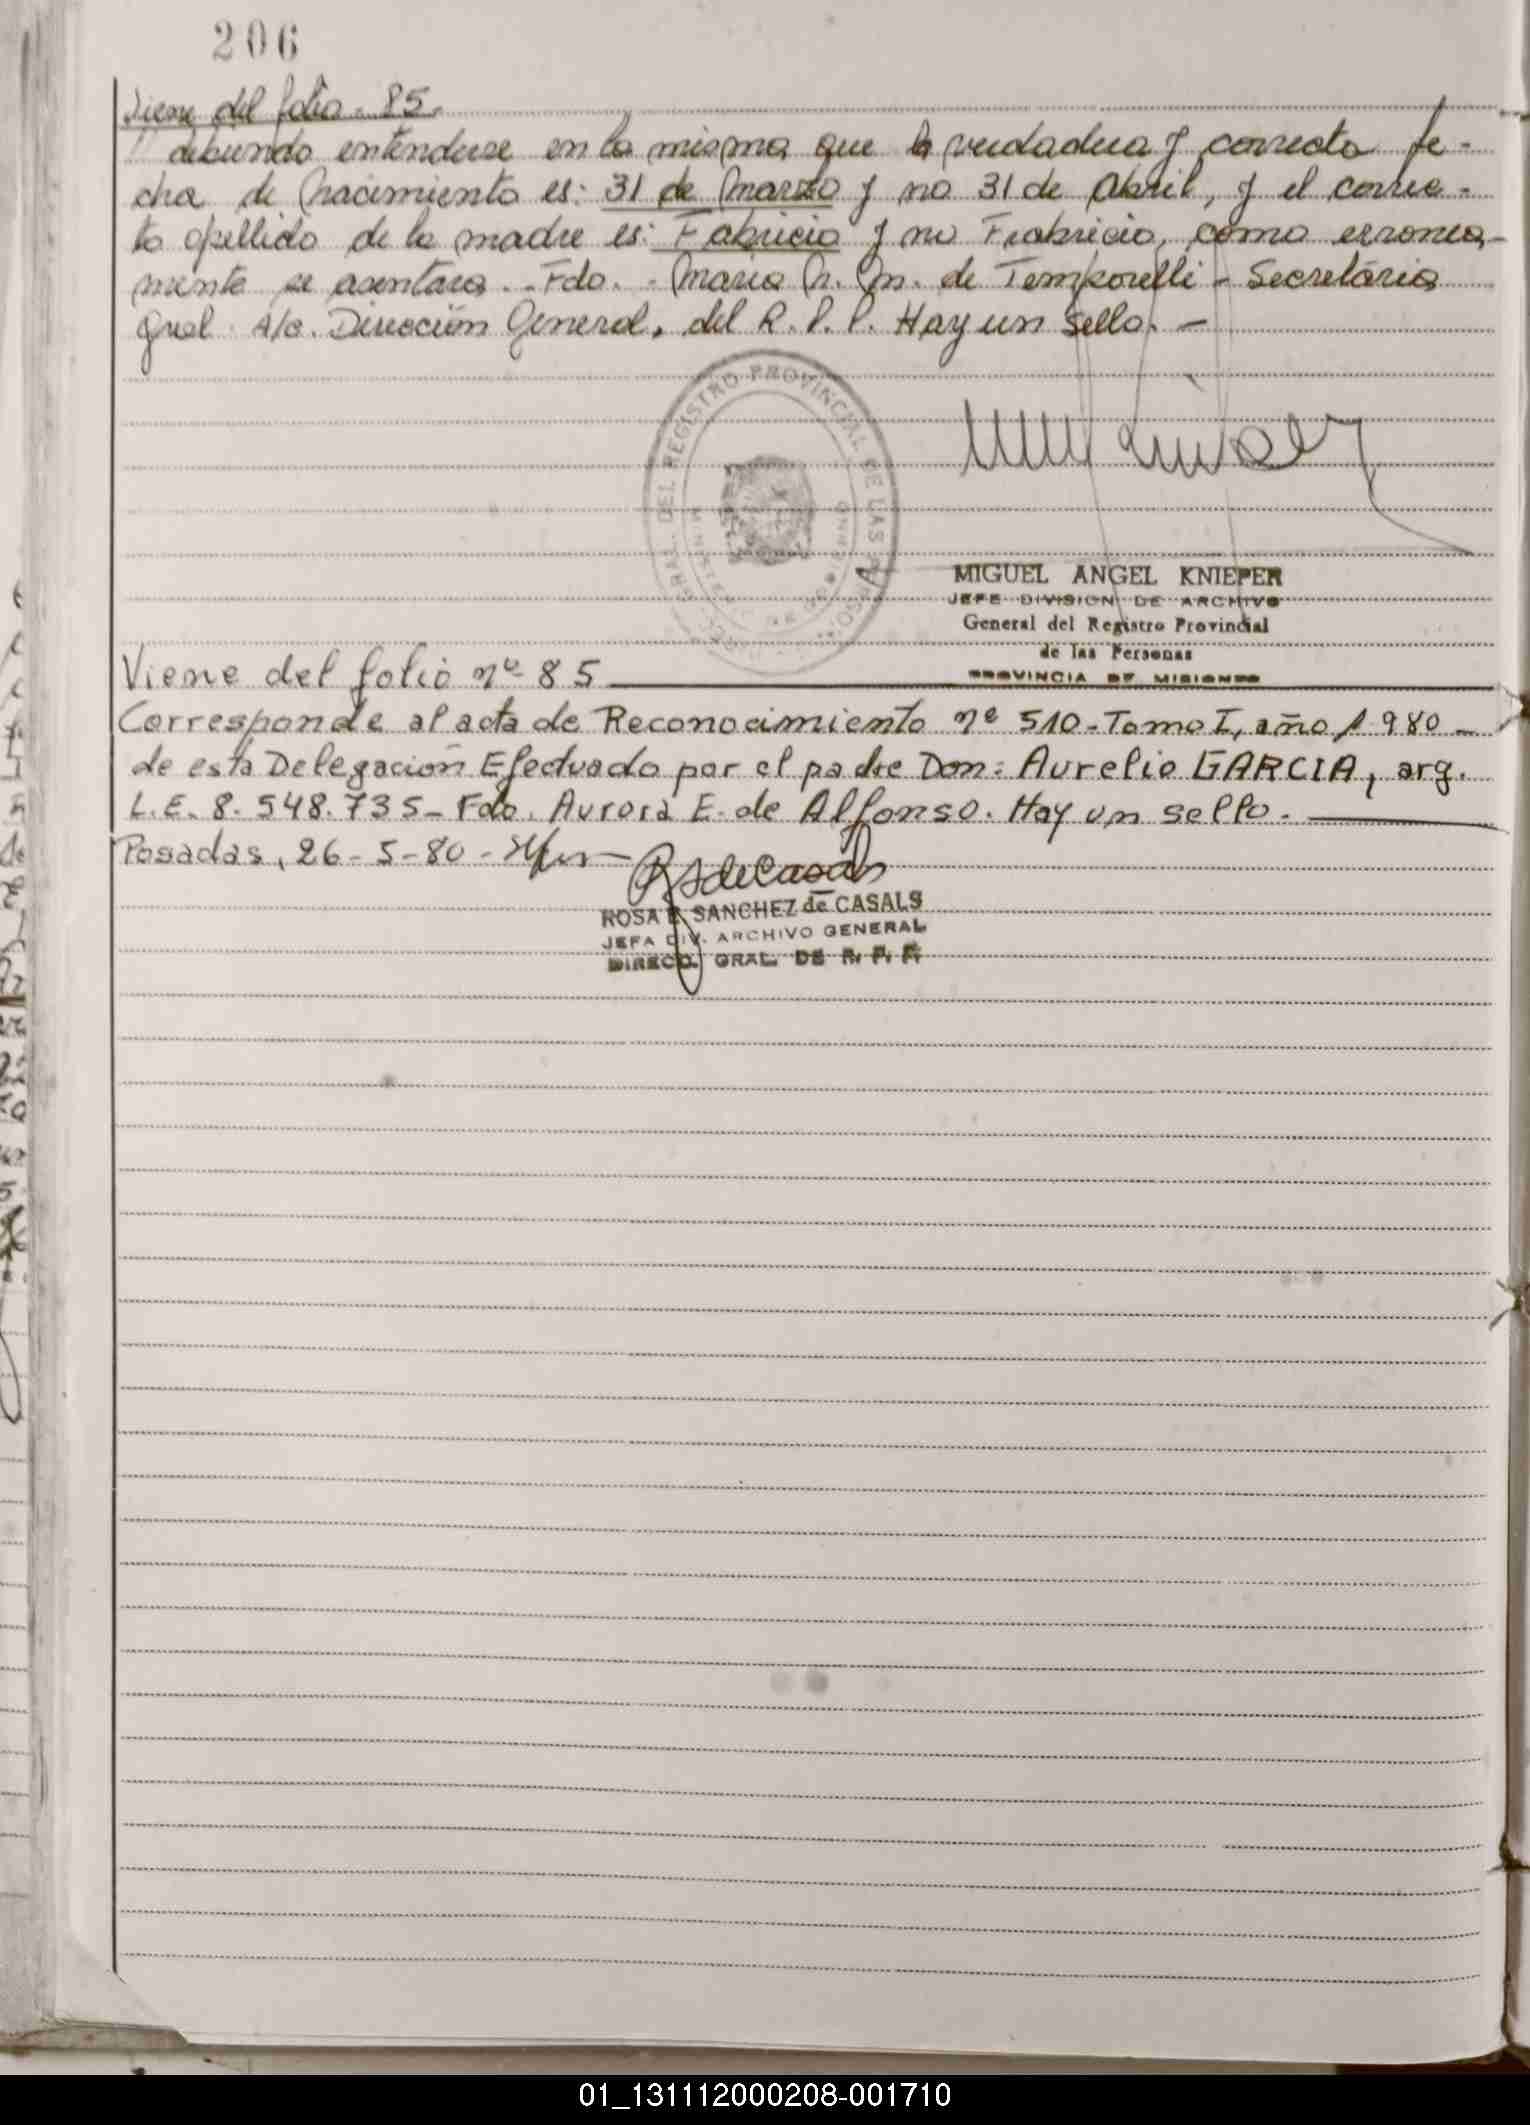 206
Viene del folio - 85.
" debiendo entenderse en la misma que la verdadera y correcta fe-
cha de nacimiento es: 31 de Marzo y no 31 de Abril, y el correc-
to apellido de la madre es: Fabricio y no Frabricio, como erronea-
mente se asentara. - Fdo. - Maria N. M. de Temporelli - Secretaria
Gral A/c. Dirección General, del R. P. P. Hay un sello. -
DEL REGISTRO PROVINCIAL DE LAS PERSO
MIGUEL ANGEL KNIEPER
JEFE DIVISION DE ARCHIVO
General del Registro Provincial
de las Personas
PROVINCIA DE MISIONES
Viene del folio nº 85
Corresponde al acta de Reconocimiento nº 510 - Tomo I, año 1.980 -
de esta Delegación Efectuado por el padre Don: Aurelio GARCIA, arg.
L.E. 8.548.735 - Fdo. Aurora E. de Alfonso. Hay un sello. -
Posadas, 26-5-80 -
ROSA SANCHEZ de CASALS
JEFA DIV. ARCHIVO GENERAL
DIRECC. GRAL. DE R. P. P.
01_131112000208-001710